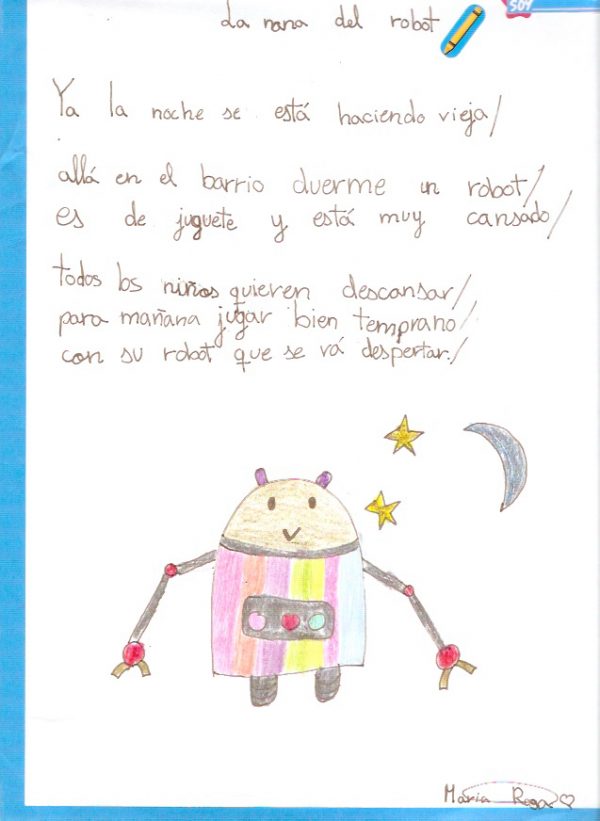 La nana del robot
SOY
Ya la noche se está haciendo vieja/
allá en el barrio duerme un robot/
es de juguete y está muy cansado/
todos los niños quieren descansar/
para mañana jugar bien temprano/
con su robot que se vá despertar./
María Rosa